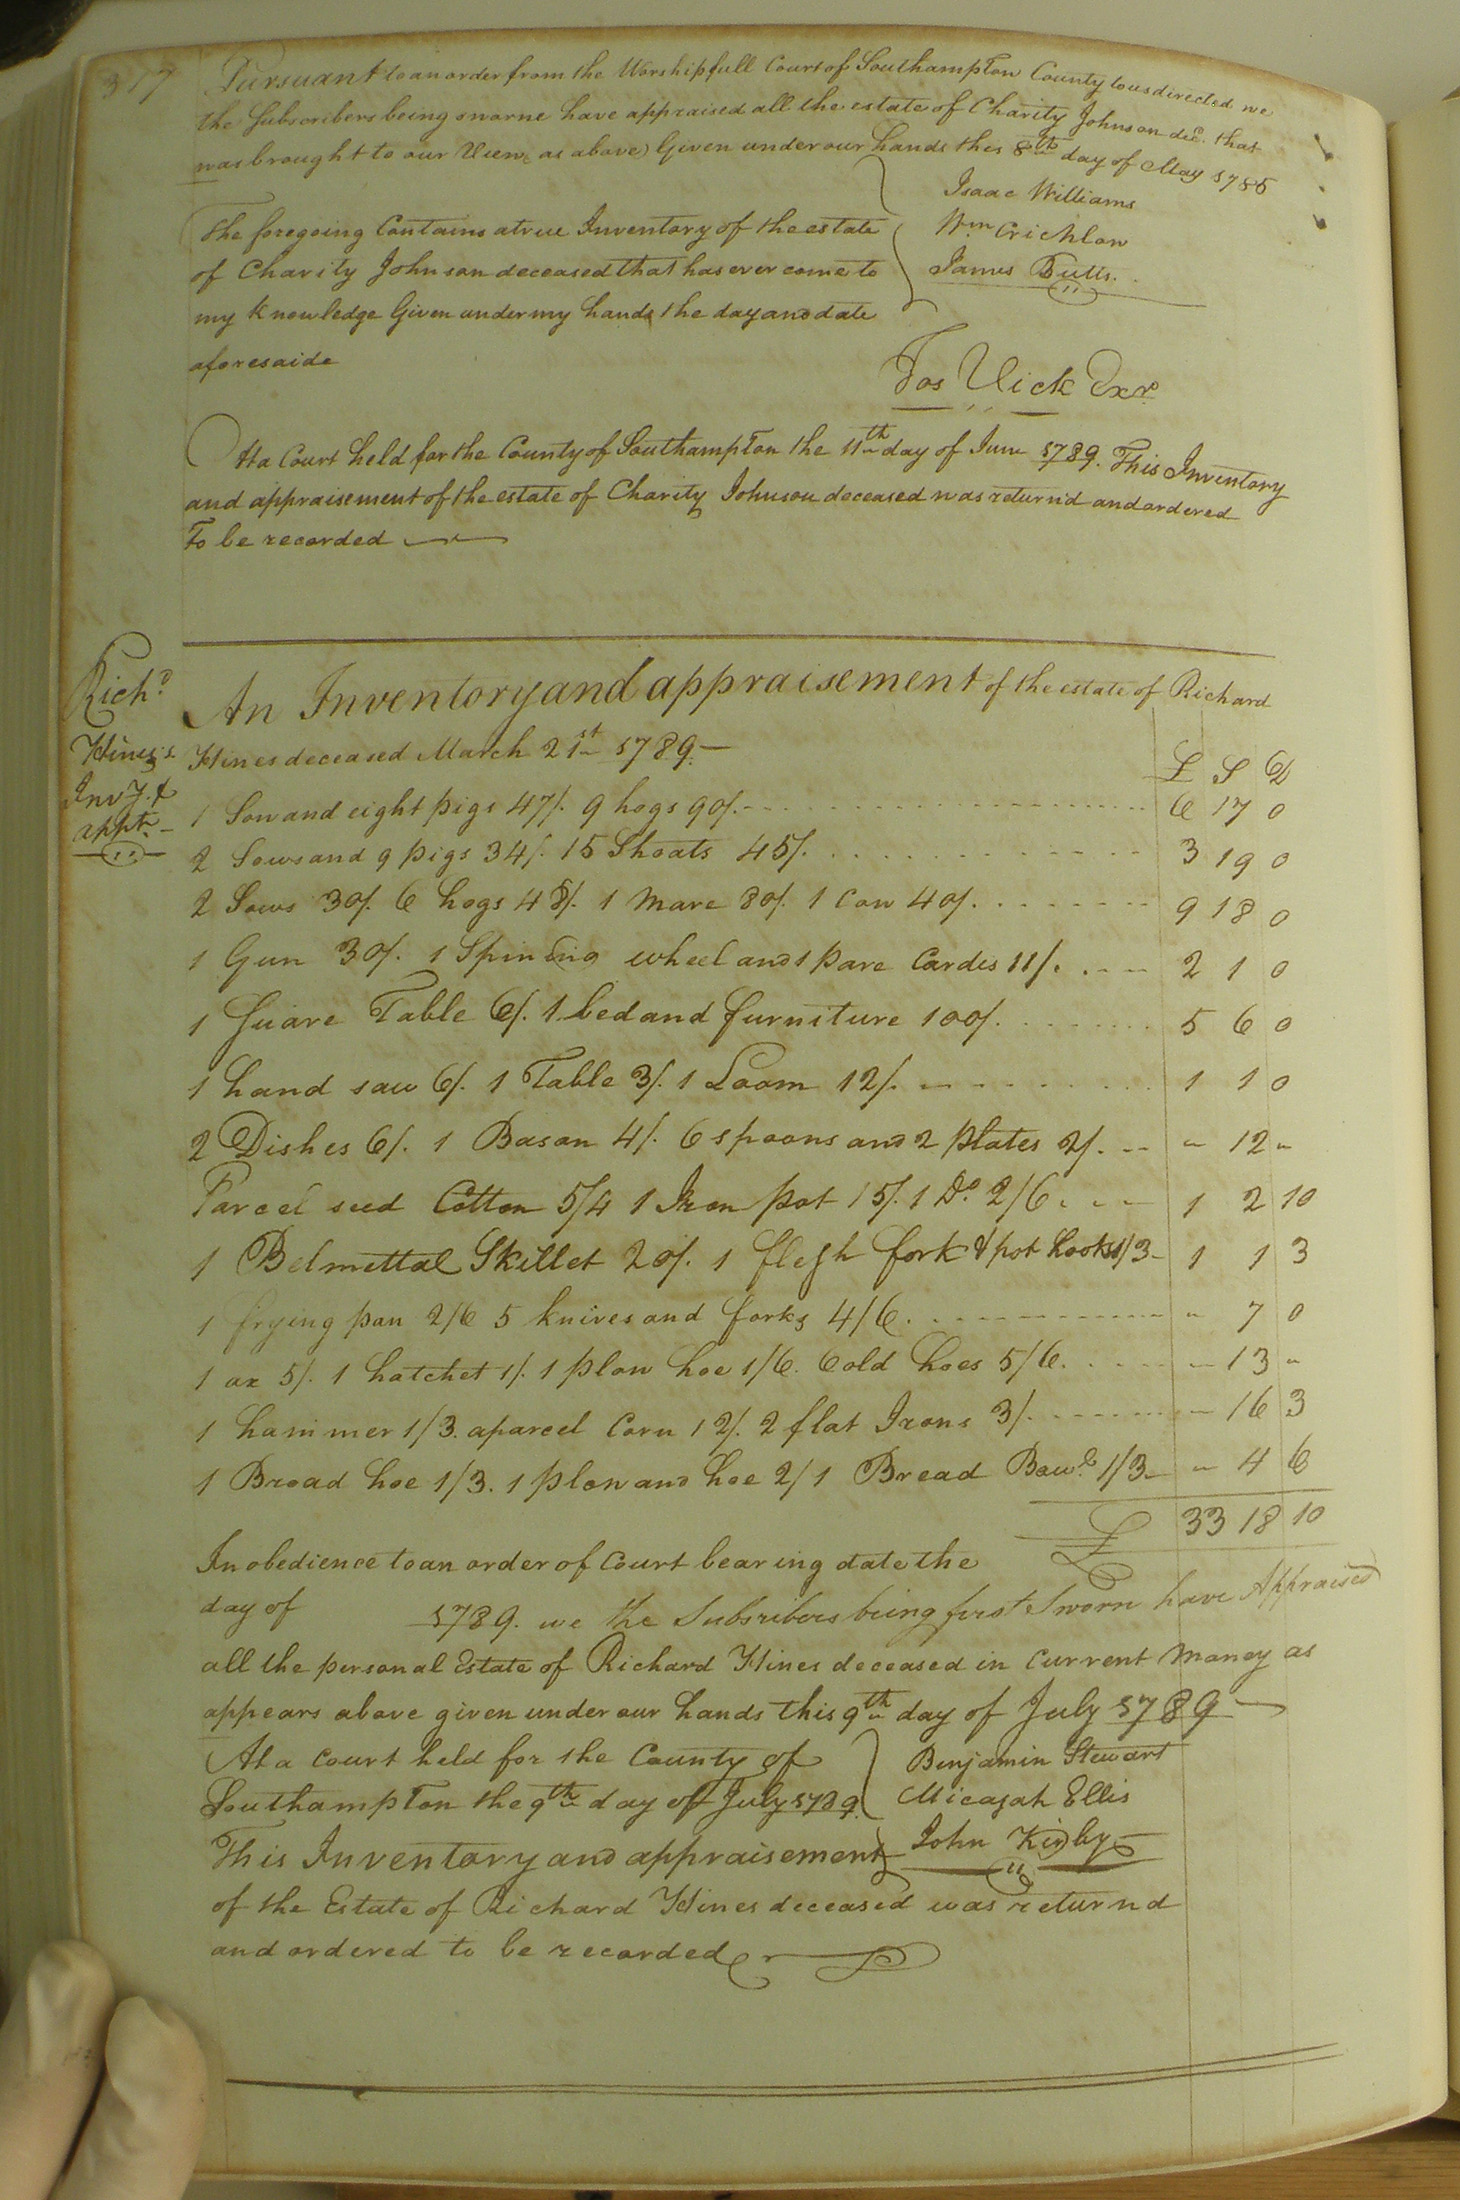 317
Pursuant to an order from the Worshipfull Court of Southampton County to us directed we
the Subscribers being sworne have appraised all the estate of Charity Johnson decd. that
was brought to our View as above) Given under our hands this 8th day of May 1786
Isaac Williams
Wm Crichlow
James Butts.
The foregoing Contains a true Inventory of the estate
of Charity Johnson deceased that has ever come to
my Knowledge Given under my hands the day and date
aforesaide
Jos Vick Exr.
At a Court held for the County of Southampton the 11th day of June 1789. This Inventory
and appraisement of the estate of Charity Johnson deceased was return'd and ordered
To be recorded
Richd.
Hines's
Invy. &
appt.
An Inventory and appraisement of the estate of Richard
Hines deceased March 21st 1789.—
£ S D
1 Sow and eight pigs 47/. 9 hogs 90/. 6 17 0
2 Sows and 9 pigs 34/. 15 Shoats 45/. 3 19 0
2 Sows 30/. 6 hogs 48/. 1 Mare 80/. 1 Cow 40/. 9 18 0
1 Gun 30/. 1 Spinning wheel and 1 pare Cardes 11/. 2 1 0
1 Square Table 6/. 1 bed and furniture 100/. 5 6 0
1 hand saw 6/. 1 Table 3/. 1 Loom 12/. 1 1 0
2 Dishes 6/. 1 Bason 4/. 6 spoons and 2 plates 2/. " 12 "
Parcel seed Cotton 5/4 1 Iron pot 15/. 1 Do. 2/6 1 2 10
1 Belmettal Skillet 20/. 1 flesh fork & pot hooks 1/3 1 1 3
1 frying pan 2/6 5 knives and forks 4/6. " 7 0
1 ax 5/. 1 hatchet 1/. 1 plow hoe 1/6. 6 old hoes 5/6. " 13 "
1 hammer 1/3. a parcel Corn 12/. 2 flat Irons 3/. " 16 3
1 Broad hoe 1/3. 1 plow and hoe 2/ 1 Bread Bowl 1/3 " 4 6
£ 33 18 10
In obedience to an order of Court bearing date the
day of 1789. we the Subsribers being first Sworn have Appraised
all the personal Estate of Richard Hines deceased in Current Money as
appears above given under our hands this 9th day of July 1789—
Benjamin Stewart
Micajah Ellis
John Kirby
At a Court held for the County of
Southampton the 9th day of July 1789.
This Inventory and appraisement
of the Estate of Richard Hines deceased was returnd
and ordered to be recorded